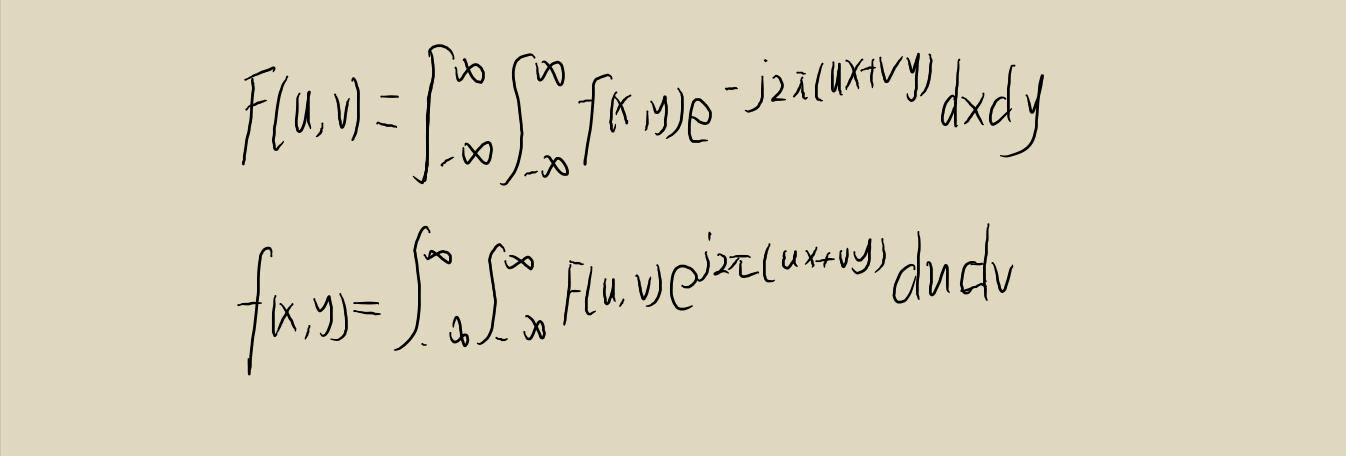 F(u,v)=∫_{-∞}^{∞}∫_{-∞}^{∞}f(x,y)e^{-j2π(ux+vy)}dxdy
f(x,y)=∫_{-∞}^{∞}∫_{-∞}^{∞}F(u,v)e^{j2π(ux+vy)}dudv